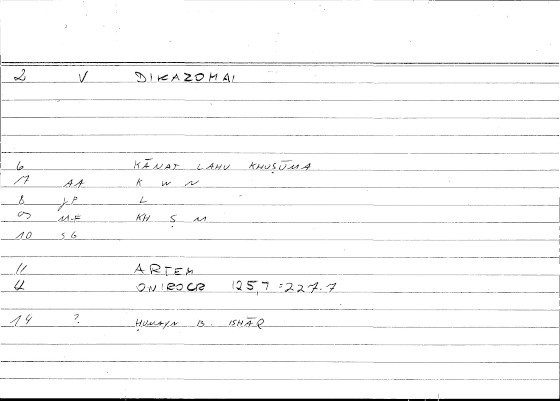 2 V DIKAZOMAI
6 KĀNAT LAHU KHUṢŪMA
7 AA K W N
8 JP L
9 MF KH Ṣ M
10 SG
11 ARTEM
4 ONIROCR 125,7 = 227.7
14 ? ḤUNAYN B. ISḤĀQ